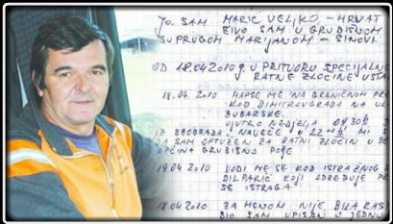 JA SAM MARIĆ VELJKO - HRVAT
ŽIVO SAM U GRUBIŠNOM
SUPRUGOM MARIJANOM - SINOVI
OD 18.04 2010 g. U PRITVORU SPECIJALNO
RATNE ZLOČINE
18.04 2010 HAPSE ME NA GRANIČNOM
KOD DIMITROVGRADA NA UL
BUGARSKE.
JUTRO NEDJELJA 04 30h
IZ BEOGRADA. NAVEČE U 22 00h MI
DA SAM OPTUŽEN ZA RATNI ZLOČIN U SE
OPĆINA GRUBIŠNO POLJE
19.04 2010 VODI ME SE KOD ISTRAŽNOG
DILPARIĆ KOJI ODREĐUJE PR
SE ISTRAGA
18.04 2010 ZA MENOM NIJE BILA RAS
BIO SAM UPISAN U JEDNU